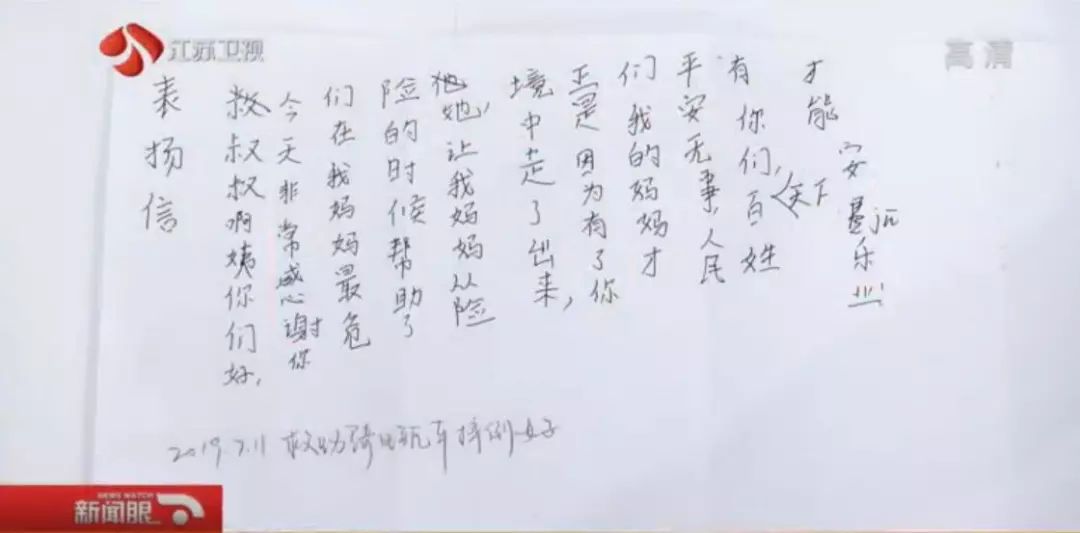 江苏卫视
高清
表扬信
叔叔啊姨你们好,
今天非常感谢你
们在我妈妈最危
险的时候帮助了
她,让我妈妈从险
境中走了出来,
正是因为有了你
们我的妈妈才
平安无事,人民
有你们,百姓
天下
才能安jū乐业
2019.7.11 救助骑电瓶车摔倒女子
NEWS WATCH
新闻眼